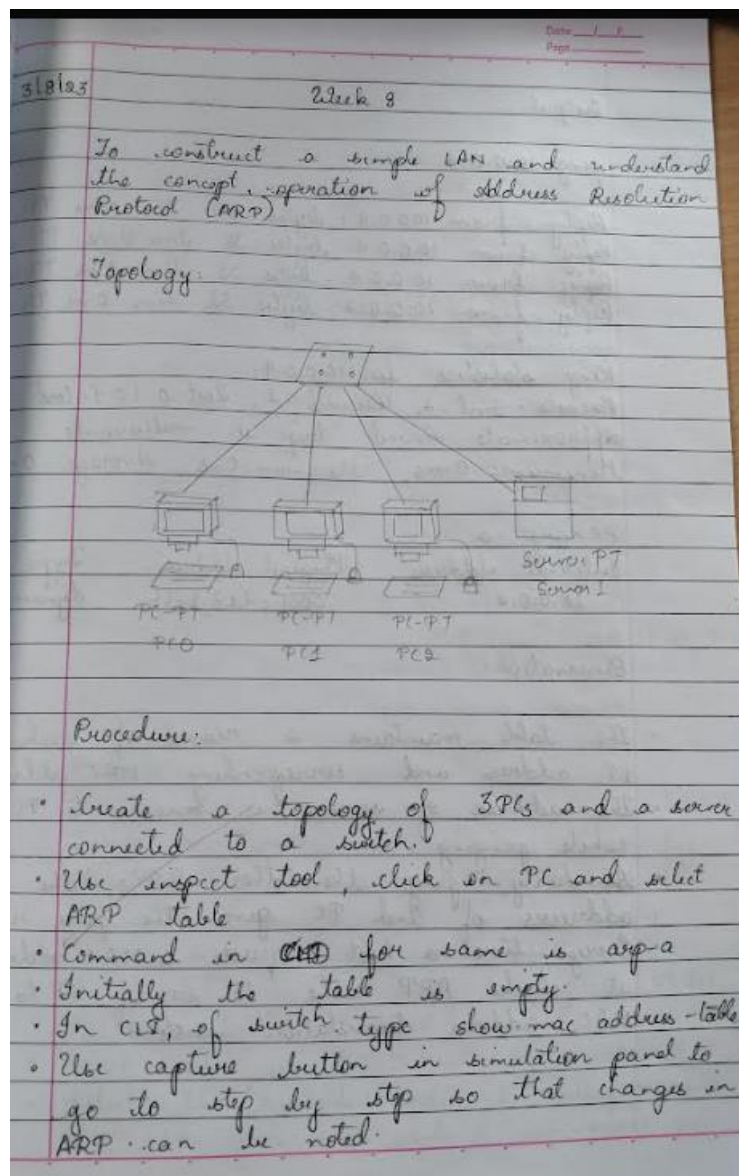 Date / /
Page
3/8/23
Week 8
To construct a simple LAN and understand
the concept, operation of Address Resolution
Protocol (ARP)
Topology:
Server PT
Server 1
PC-PT
PC-PT
PC-PT
PC0
PC1
PC2
Procedure:
• Create a topology of 3PCs and a server
connected to a switch.
• Use inspect tool, click on PC and select
ARP table
• Command in for same is arp-a
• Initially the table is empty.
• In CLI, of switch. type show mac address-table
• Use capture button in simulation panel to
go to step by step so that changes in
ARP can be noted.